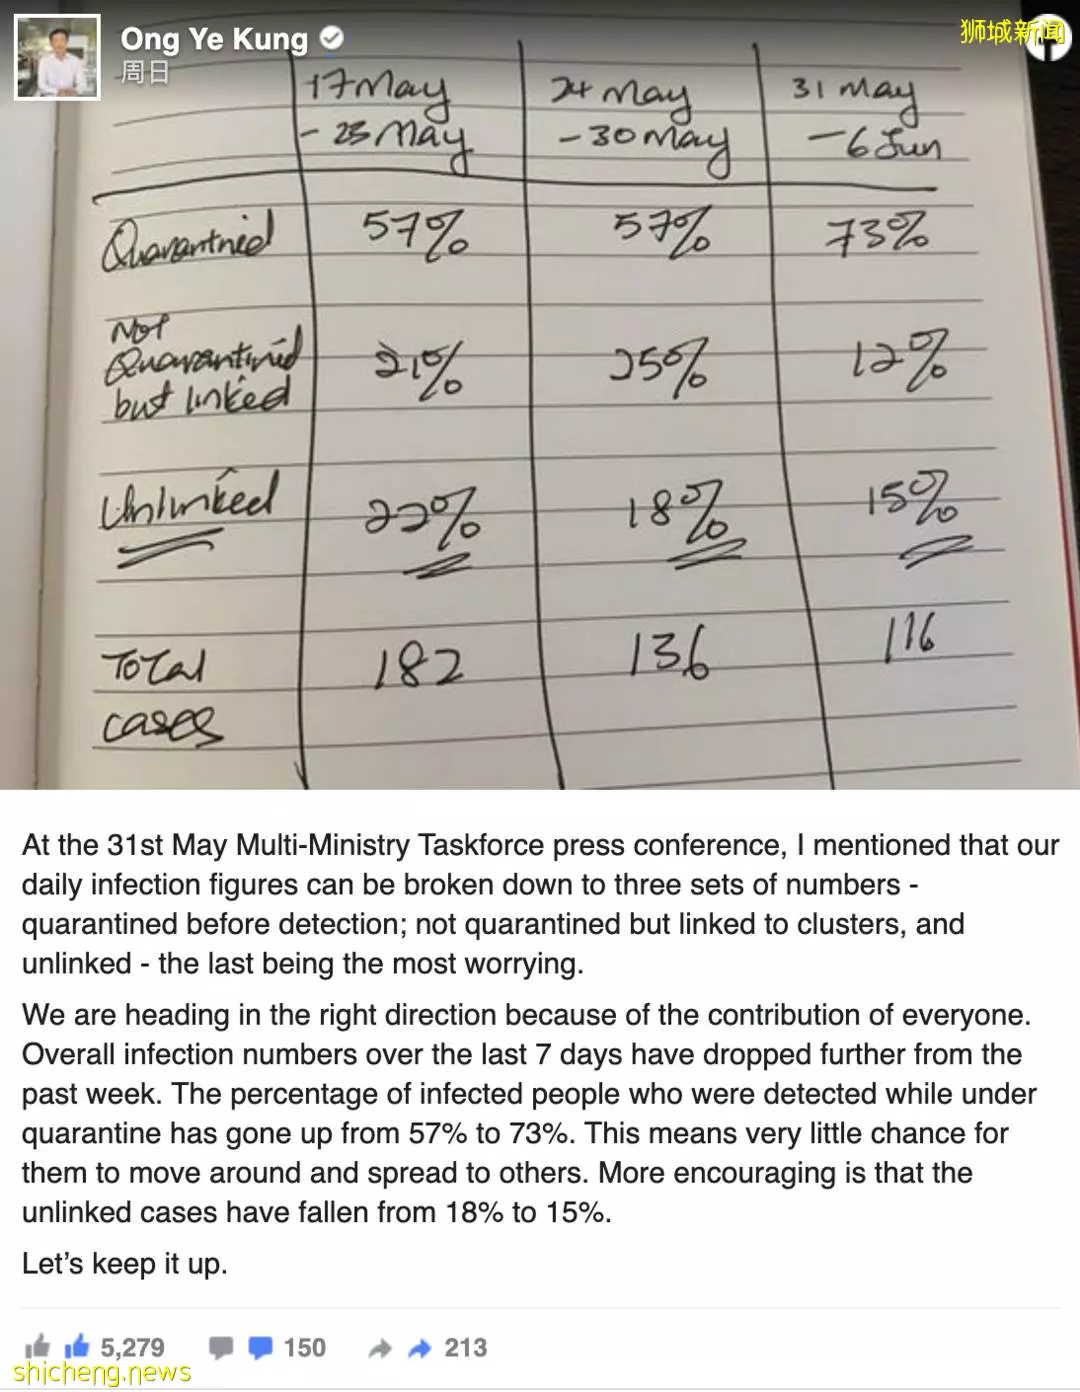 Ong Ye Kung
周日
狮城新闻
17 May 24 May 31 May
- 23 May - 30 May - 6 Jun
Quarantnied 57% 57% 73%
Not
Quarantinied 21% 25% 12%
but linked
Unlinked 22% 18% 15%
Total 182 136 116
cases
At the 31st May Multi-Ministry Taskforce press conference, I mentioned that our
daily infection figures can be broken down to three sets of numbers -
quarantined before detection; not quarantined but linked to clusters, and
unlinked - the last being the most worrying.
We are heading in the right direction because of the contribution of everyone.
Overall infection numbers over the last 7 days have dropped further from the
past week. The percentage of infected people who were detected while under
quarantine has gone up from 57% to 73%. This means very little chance for
them to move around and spread to others. More encouraging is that the
unlinked cases have fallen from 18% to 15%.
Let’s keep it up.
5,279 150 213
shicheng.news